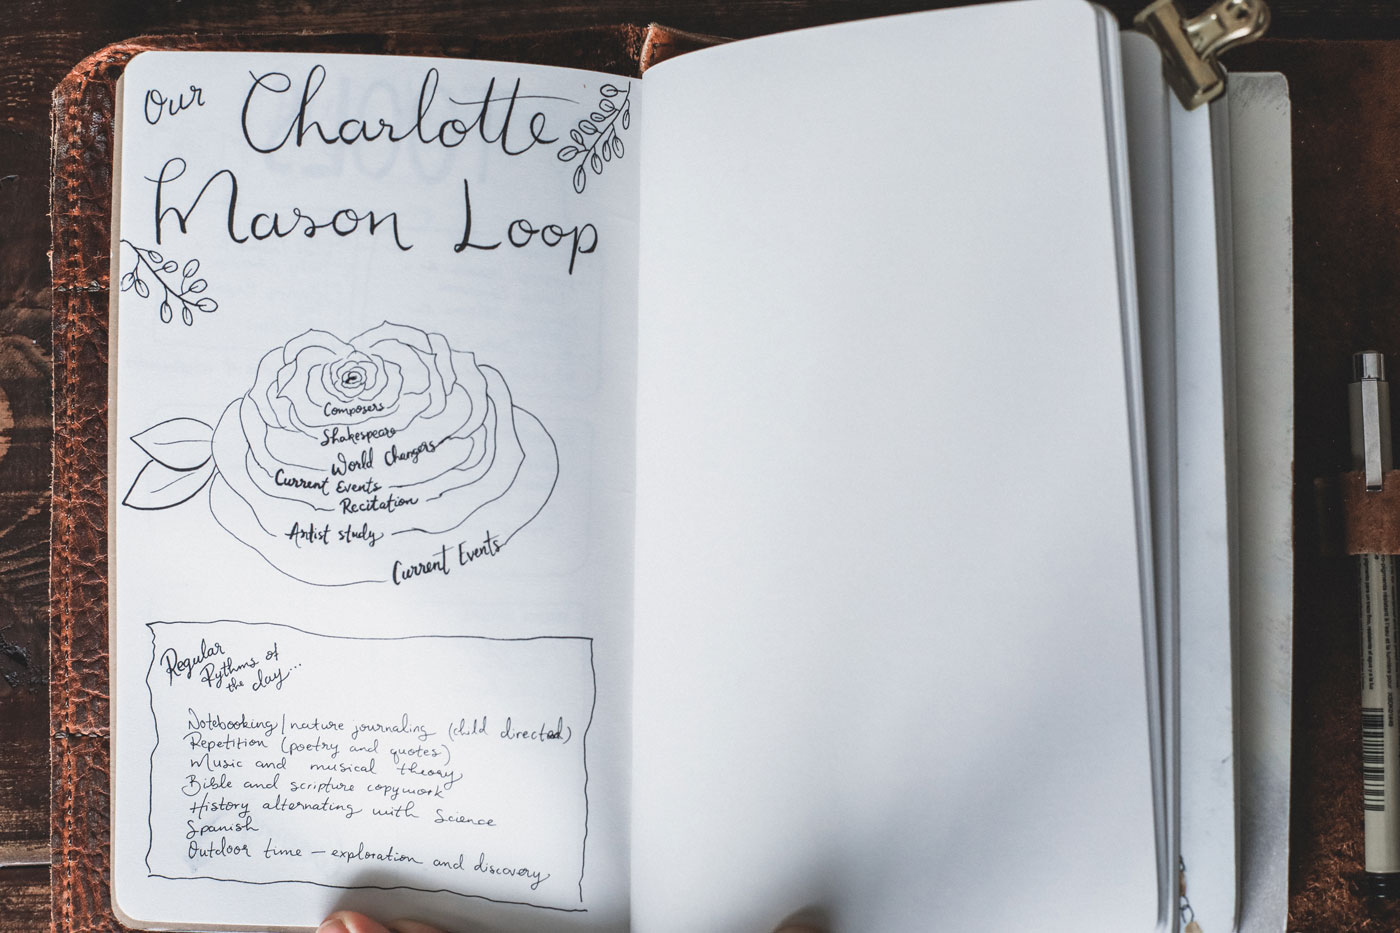 our Charlotte
Mason Loop
Composers
Shakespeare
World Changers
Current Events
Recitation
Artist study
Current Events
Regular
Rythms of
the day...
Notebooking/nature journaling (child directed)
Repetition (poetry and quotes)
Music and musical theory
Bible and scripture copywork
History alternating with Science
Spanish
Outdoor time — exploration and discovery